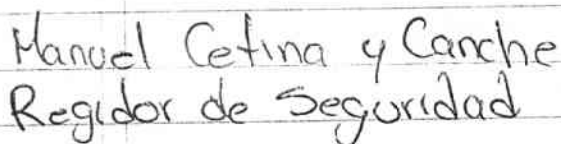 Manuel Cetina y Canche
Regidor de Seguridad